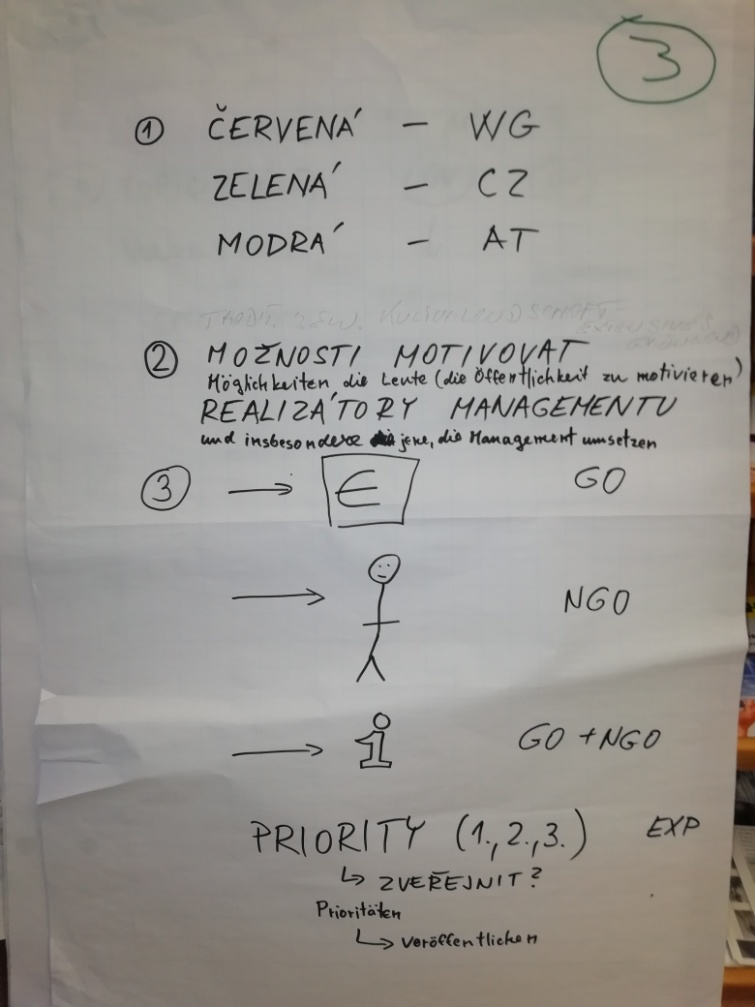 3
① ČERVENÁ - WG
ZELENÁ - CZ
MODRÁ - AT
② MOŽNOSTI MOTIVOVAT
Möglichkeiten die Leute (die Öffentlichkeit zu motivieren)
REALIZÁTORY MANAGEMENTU
und insbesondere jene, die Management umsetzen
③ → € GO
→ NGO
→ i GO + NGO
PRIORITY (1., 2., 3.) EXP
↳ ZVEŘEJNIT?
Prioritäten
↳ veröffentlichen